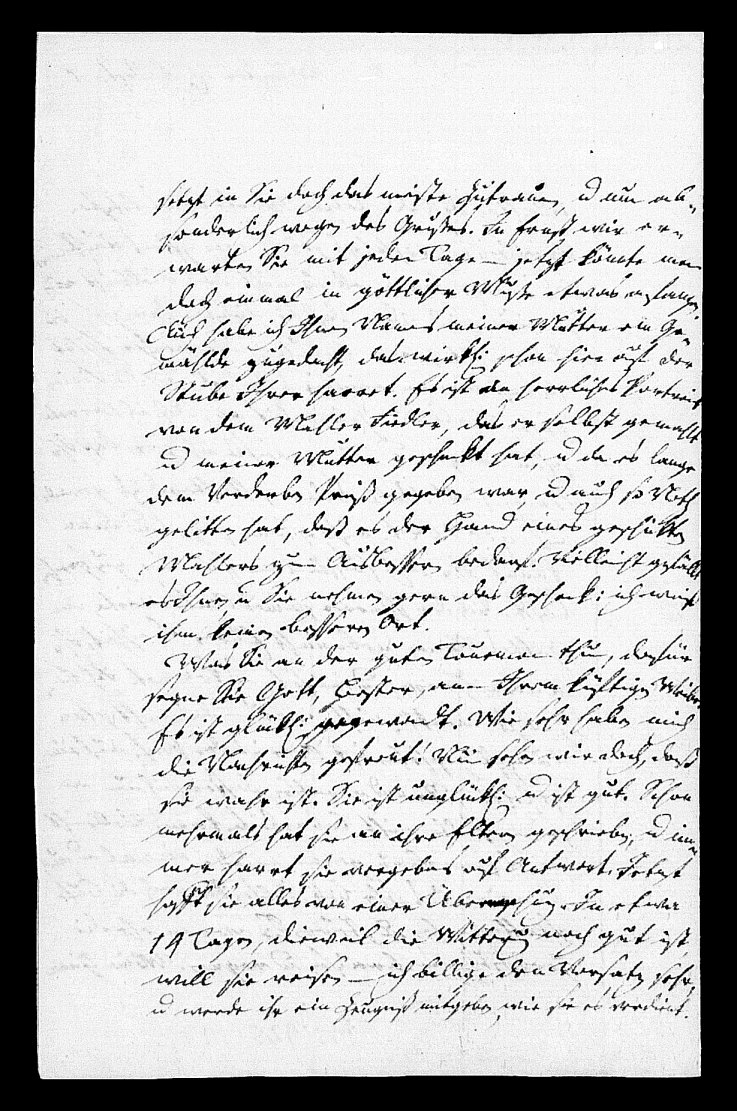 setzt in Sie doch das meiste Zutrauen, u nun ab-
sonderlich wegen des Grußes. In Ernst, wir er-
warten Sie mit jedem Tage — jetzt könte man
doch einmal in göttlicher Muße etwas anfangen.
Auch habe ich Ihnen Namens meiner Mutter ein Ge-
mählde zugedacht, das wirkl: schon hier auf der
Stube Ihrer harret. Es ist ein herrliches Portrait
von dem Mahler Fiedler, das er selbst gemahlt
u meiner Mutter geschenkt hat, u da es lange
dem Verderben Preiß gegeben war, u auch so Noth
gelitten hat, daß es der Hand eines geschikten
Mahlers zum Ausbessern bedarf. Vielleicht gefällt
es Ihnen u Sie nehmen gern das Geschenk: ich weiß
ihm keinen besseren Ort.
Was Sie an der guten thun, dafür
segne Sie Gott, Bester, an Ihrem künftigen Weibe.
Es ist glükl: gewandt. Wie sehr haben mich
die Nachrichten gefreut! Nun sehen wir doch, daß
sie wahr ist. Sie ist unglükl: u ist gut. Schon
mehrmals hat sie an ihre Eltern geschrieben, u im-
mer harrt sie vergebens auf Antwort. Jetzt
hofft sie alles von einer Überraschung. In etwa
14 Tagen, dieweil die Witterung noch gut ist,
will sie reisen — ich billige den Vorsatz sehr,
u werde ihr ein Zeugniß mitgeben, wie sie es verdient.